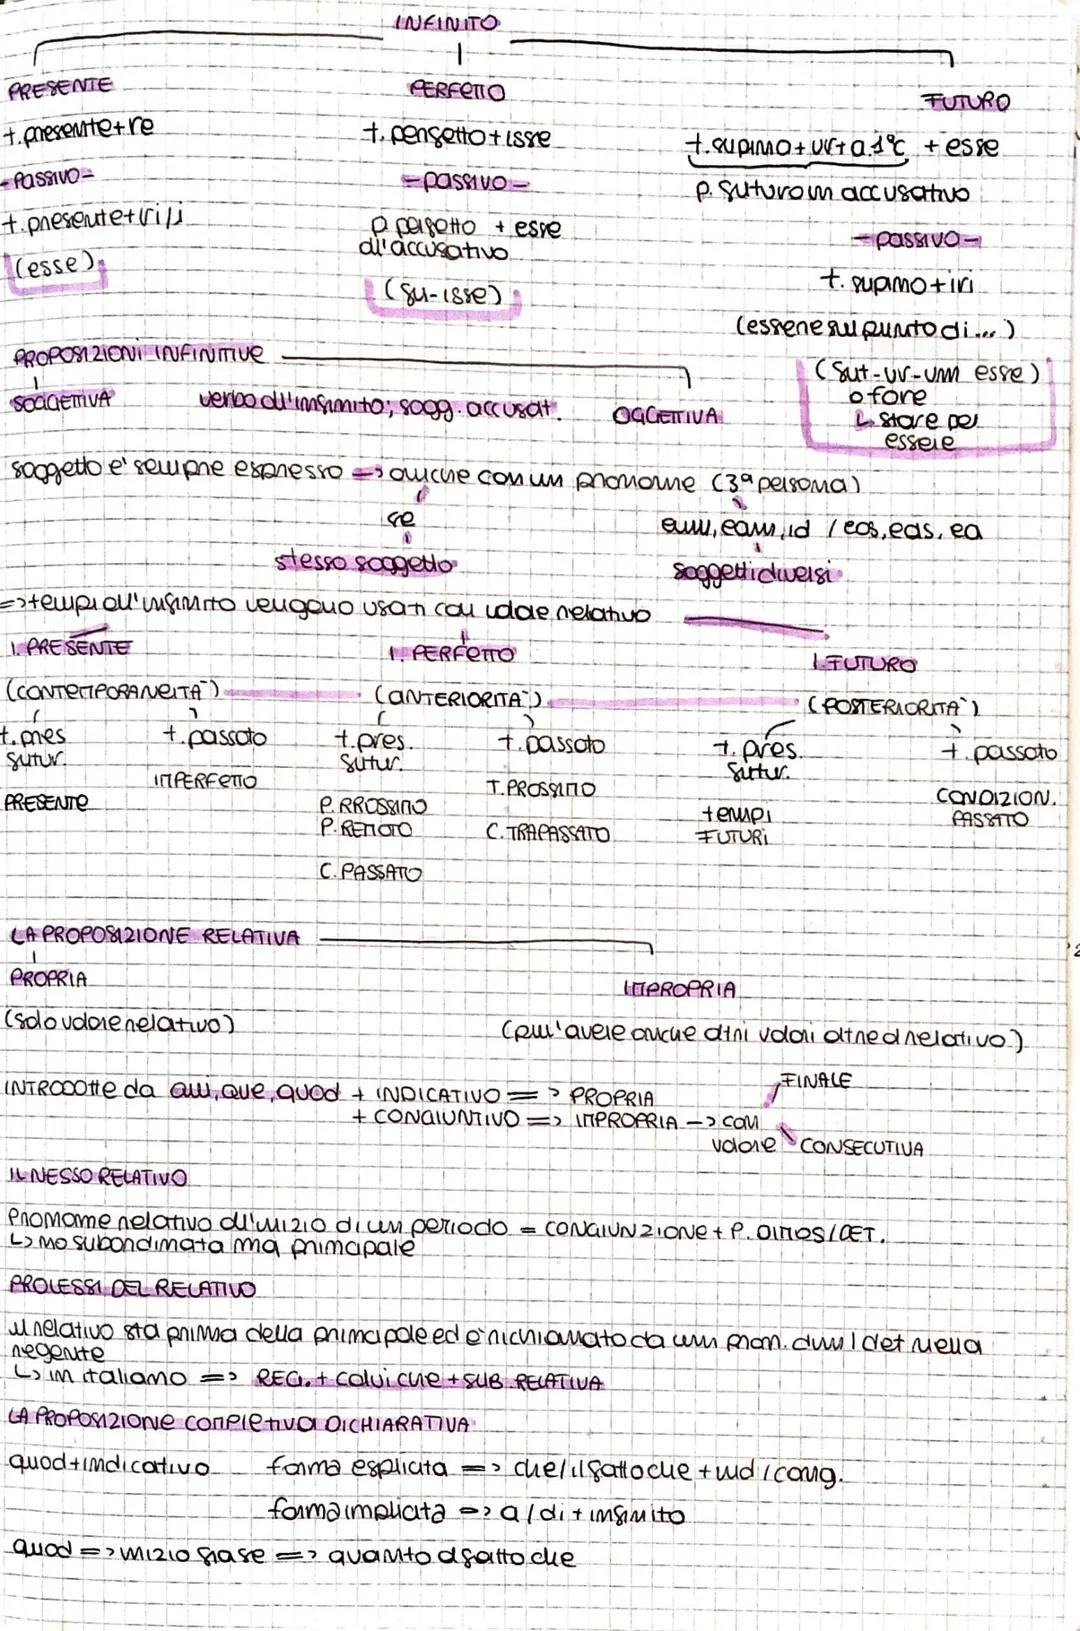 INFINITO
PRESENTE PERFETTO FUTURO
t. presente+re t. perfetto+isse t.supino+ur+a.1ªc + esse
-PASSIVO- -passivo- p. futuro in accusativo
t. presente+iri/i p perfetto + esse -passivo-
all'accusativo
(esse) (fu-isse) t. supino+iri
(essere sul punto di...)
PROPOSIZIONI INFINITIVE (fut-ur-um esse)
o fore
SOGGETTIVA verbo all'infinito; sogg. accusat. OGGETTIVA ↳ stare per
essere
soggetto e' sempre espresso => anche con un pronome (3ª persona)
se eum, eam, id / eos, eas, ea
stesso soggetto soggetti diversi
=> tempi all'infinito vengono usati con valore relativo
I. PRESENTE I. PERFETTO I. FUTURO
(CONTEMPORANEITA') (ANTERIORITA') (POSTERIORITA')
t. pres t. passato t. pres. t. passato t. pres. t. passato
futur. futur. futur.
IMPERFETTO T. PROSSIMO CONDIZION.
PRESENTE P. RROSSIMO tempi PASSATO
P. REMOTO C. TRAPASSATO FUTURI
C. PASSATO
LA PROPOSIZIONE RELATIVA
PROPRIA IMPROPRIA
(solo valore relativo) (puu' avere anche altri valori oltre al relativo)
INTRODOTTE da qui, que, quod + INDICATIVO => PROPRIA FINALE
+ CONGIUNTIVO => IMPROPRIA -> con
valore CONSECUTIVA
IL NESSO RELATIVO
Pronome relativo all'inizio di un periodo = CONGIUNZIONE + P. DIMOS/DET.
↳ no subordinata ma principale
PROLESSI DEL RELATIVO
il relativo sta prima della principale ed e' richiamato da un pron. dim/det nella
regente
↳ in italiano => REG. + colui che + SUB. RELATIVA
LA PROPOSIZIONE COMPLETIVA DICHIARATIVA
quod+indicativo forma esplicita => che/il fatto che + ind/cong.
forma implicita => a/di + infinito
quod => inizio frase => quanto al fatto che